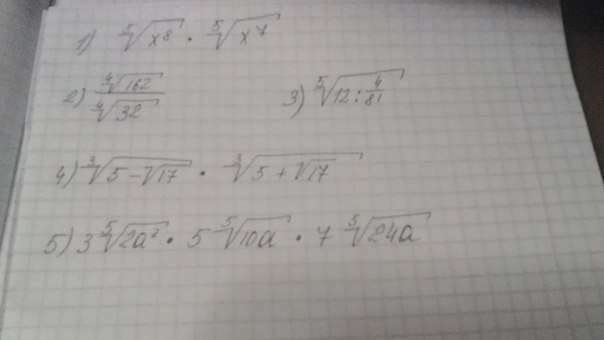 1) ⁵√x⁸ · ⁵√x⁷
2) ⁴√162 / ⁴√32
3) ⁵√12 : 4/81
4) ³√5 - √17 · ³√5 + √17
5) 3 ⁵√2a² · 5 ⁵√10a · 7 ⁵√24a